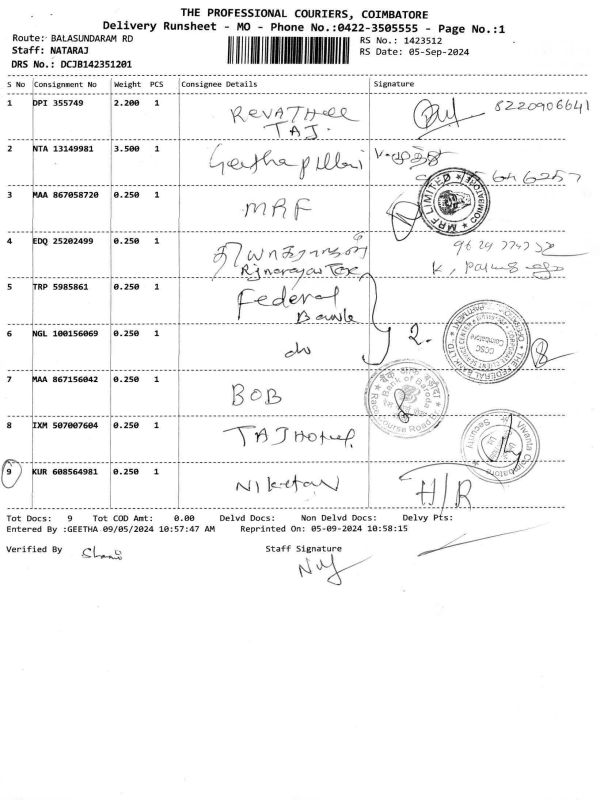 THE PROFESSIONAL COURIERS, COIMBATORE
Delivery Runsheet - MO - Phone No.:0422-3505555 - Page No.:1
Route: BALASUNDARAM RD
RS No.: 1423512
Staff: NATARAJ
RS Date: 05-Sep-2024
DRS No.: DCJB142351201
S No Consignment No Weight PCS Consignee Details Signature
1 DPI 355749 2.200 1 8220906641
TAJ.
2 NTA 13149981 3.500 1 Geetha pillai
3 MAA 867058720 0.250 1 MRF
MRF LIMITED COIMBATORE
4 EDQ 25202499 0.250 1
5 TRP 5985861 0.250 1 Federal
Bank
6 NGL 100156069 0.250 1 do 2.
THE FEDERAL BANK LTD.
Coimbatore
7 MAA 867156042 0.250 1 BOB
बैंक ऑफ़ बड़ौदा
Bank of Baroda
Race Course Road
8 IXM 507007604 0.250 1 TAJ Hotel
Vivanta Coimbatore
Security
9 KUR 608564981 0.250 1 Niketan H/R
Tot Docs: 9 Tot COD Amt: 0.00 Delvd Docs: Non Delvd Docs: Delvy Pts:
Entered By :GEETHA 09/05/2024 10:57:47 AM Reprinted On: 05-09-2024 10:58:15
Verified By Staff Signature